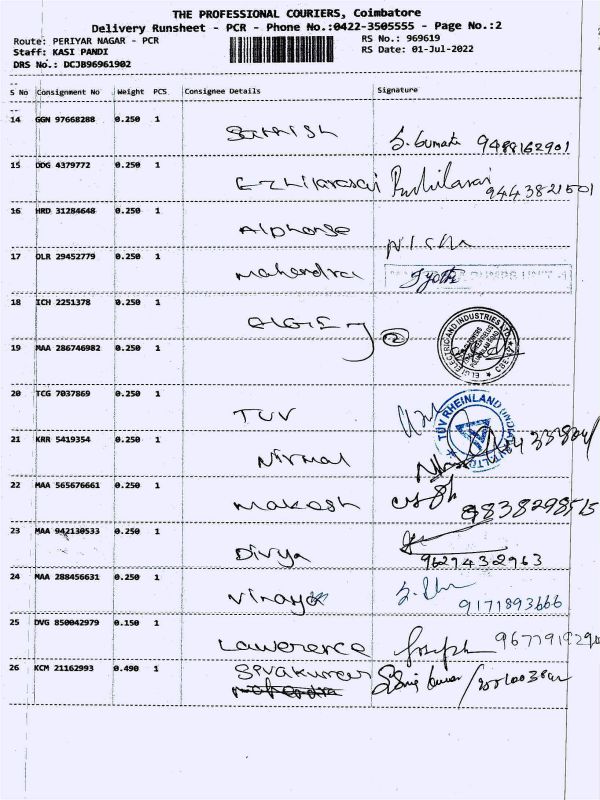 THE PROFESSIONAL COURIERS, Coimbatore
Delivery Runsheet - PCR - Phone No.:0422-3505555 - Page No.:2
Route: PERIYAR NAGAR - PCR
RS No.: 969619
Staff: KASI PANDI
RS Date: 01-Jul-2022
DRS No.: DCJB96961902
S No Consignment No Weight PCS Consignee Details Signature
14 GGN 97668288 0.250 1 Sathish S. Sumathi 9488162901
15 DDG 4379772 0.250 1 Ezhilarasai 9443821501
16 HRD 31284648 0.250 1 Alphonse Nisha
17 DLR 29452779 0.250 1 Mahendra Jyothi
18 ICH 2251378 0.250 1 ELGI ELECTRIC AND INDUSTRIES LTD
19 MAA 286746982 0.250 1 2
20 TCG 7037869 0.250 1 TUV TÜV RHEINLAND
21 KRR 5419354 0.250 1 Nirmal
22 MAA 565676661 0.250 1 Makesh 9838298515
23 MAA 942130533 0.250 1 Divya 9629432963
24 MAA 288456631 0.250 1 Vinaya 9171893666
25 DVG 850042979 0.150 1 Lawerence Joseph
26 KCM 21162993 0.490 1 Sivakumar